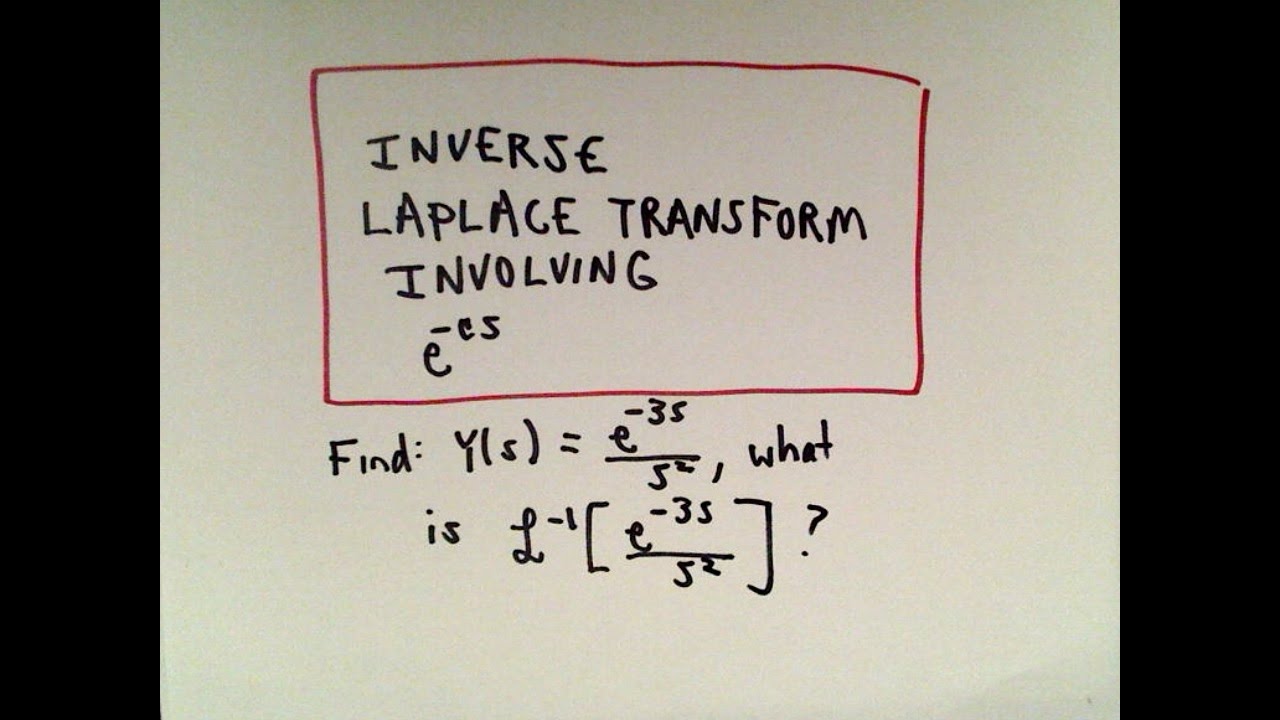 INVERSE
LAPLACE TRANSFORM
INVOLVING
e^{-cs}
Find: Y(s) = \frac{e^{-3s}}{s^2}, what
is ℒ^{-1}[\frac{e^{-3s}}{s^2}]?